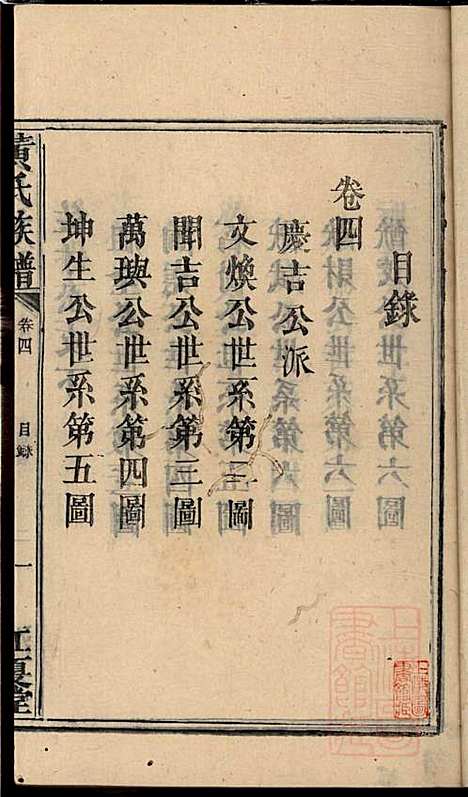 目錄
卷四
慶吉公派
文煥公世系第二圖
聞吉公世系第三圖
萬興公世系第四圖
坤生公世系第五圖
黃氏族譜
卷四
目錄
一
江夏堂